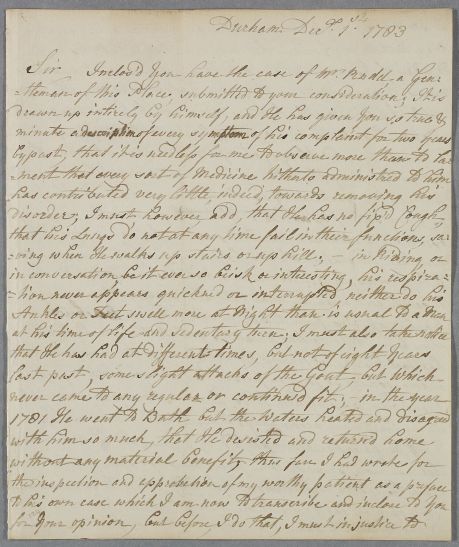 Durham Decr. 1st. 1783
Sir Inclos'd You have the case of Mr. Rudd a Gen=
=tleman of this Place, submitted to your consideration; It is
drawn up intirely by himself, and He has given You so true &
minute a description of every symptom of his complaint for two years
bypast, that it is needless for me to observe more than to la=
=ment that every sort of Medicine hitherto administred to him
has contributed very little, indeed, towards removing his
disorder; I must however add, that He has no fix'd Cough,
that his Lungs do not at any time fail in their functions, sa=
=ving when He walks up stairs or up hill; – in Riding or
in conversation be it ever so brisk or interesting, his respira=
=tion never appears quickned or interrupted neither do his
Ankles or Feet swell more at Night than is usual to a Man
at his time of life and sedentary then: I must also take notice
that He has had at different times, but not of eight Years
last past, some slight attacks of the Gout, but which
never came to any regular or continued fit; – in the year
1781 He went to Bath but the Waters heated and disagreed
with him so much, that He desisted and returnd home
without any material benefit. thus far I had wrote for
the inspection and approbation of my worthy patient as a preface
to his own case which I am now to transcribe and inclose to You
for Your opinion, but before I do that, I must in justice to